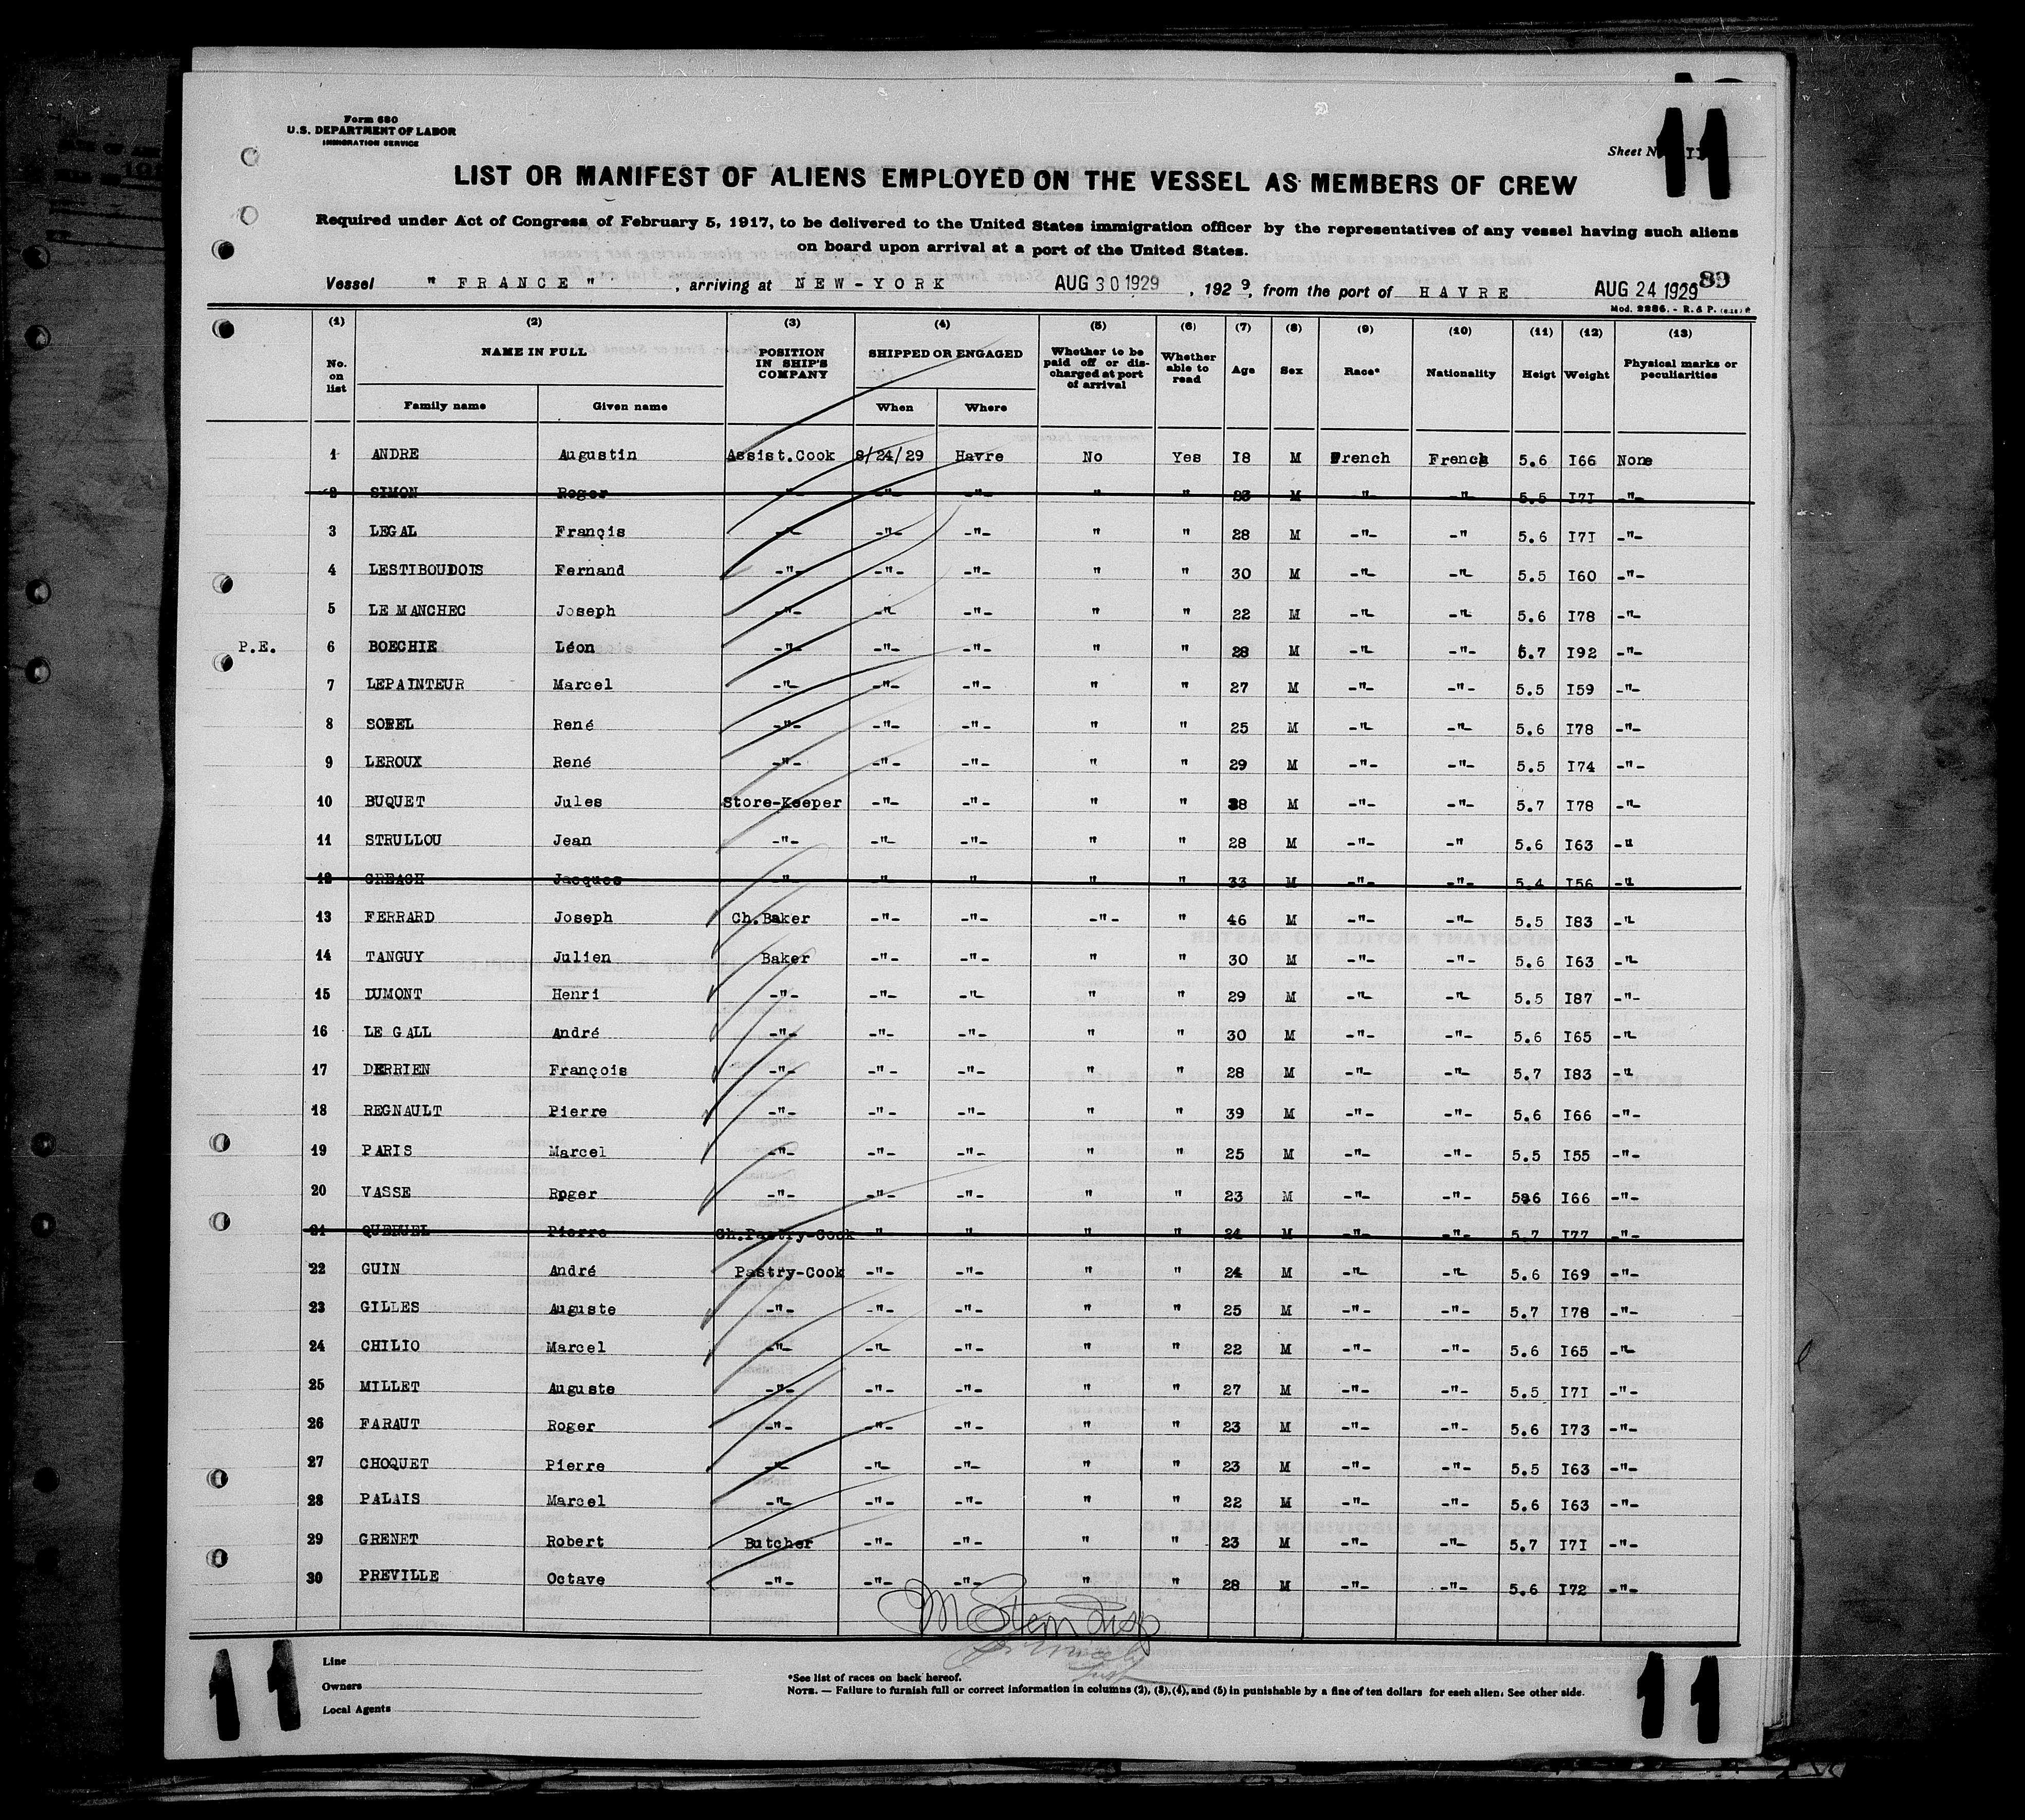 Form 680
U.S. DEPARTMENT OF LABOR
IMMIGRATION SERVICE
11
Sheet N
LIST OR MANIFEST OF ALIENS EMPLOYED ON THE VESSEL AS MEMBERS OF CREW
Required under Act of Congress of February 5, 1917, to be delivered to the United States immigration officer by the representatives of any vessel having such aliens
on board upon arrival at a port of the United States.
Vessel " FRANCE ", arriving at NEW-YORK AUG 30 1929, 1929, from the port of HAVRE AUG 24 1929 89
Mod. 2286. - R. & P.
(1) (2) (3) (4) (5) (6) (7) (8) (9) (10) (11) (12) (13)
No. on list NAME IN FULL Family name Given name POSITION IN SHIP'S COMPANY SHIPPED OR ENGAGED When Where Whether to be paid off or discharged at port of arrival Whether able to read Age Sex Race* Nationality Heigt Weight Physical marks or peculiarities
1 ANDRE Augustin Assist.Cook 8/24/29 Havre No Yes I8 M French French 5.6 I66 None
2 SIMON Roger -"- -"- -"- " " 23 M -"- -"- 5.5 I7I -"-
3 LEGAL Françis -"- -"- -"- " " 28 M -"- -" 5.6 I7I -"-
4 LESTIBOUDOIS Fernand -"- -"- -"- " " 30 M -"- -"- 5.5 I60 -"-
5 LE MANCHEC Joseph -"- -"- -"- " " 22 M -"- -"- 5.6 I78 -"-
P.E. 6 BOECHIE Léon -"- -"- -"- " " 28 M -"- -"- 5.7 I92 -"-
7 LEPAINTEUR Marcel -"- -"- -"- " " 27 M -"- -"- 5.5 I59 -"-
8 SOREL René -"- -"- -"- " " 25 M -"- -"- 5.6 I78 -"-
9 LEROUX René -"- -"- -"- " " 29 M -"- -"- 5.5 I74 -"-
10 BUQUET Jules Store-Keeper -"- -"- " " 38 M -"- -"- 5.7 I78 -"-
11 STRULLOU Jean -"- -"- -"- " " 28 M -"- -" 5.6 I63 -"
12 CREACH Jacques " " " " " 33 M -"- -"- 5.4 I56 -"
13 FERRARD Joseph Ch.Baker -"- -"- -"- " 46 M -"- -"- 5.5 I83 -"-
14 TANGUY Julien Baker -"- -"- " " 30 M -"- -"- 5.6 I63 -"-
15 DUMONT Henri -"- -"- -"- " " 29 M -"- -"- 5.5 I87 -"-
16 LE GALL André -"- -"- -"- " " 30 M -"- -"- 5.6 I65 -"-
17 DERRIEN François -"- -"- -"- " " 28 M -"- -"- 5.7 I83 -"
18 REGNAULT Pierre -"- -"- -"- " " 39 M -"- -"- 5.6 I66 -"-
19 PARIS Marcel -"- -"- -"- " " 25 M -"- -"- 5.5 I55 -"-
20 VASSE Roger -"- -"- -"- " " 23 M -"- -"- 5.6 I66 -"-
21 QUERUEL Pierre Ch.Pastry-Cook " " " " 24 M -"- -"- 5.7 I77 -"-
22 GUIN André Pastry-Cook -"- -"- " " 24 M -"- -"- 5.6 I69 -"-
23 GILLES Auguste -"- -"- -"- " " 25 M -"- -"- 5.7 I78 -"-
24 CHILIO Marcel -"- -"- -"- " " 22 M -"- -"- 5.6 I65 -"-
25 MILLET Auguste -"- -"- -"- " " 27 M -"- -"- 5.5 I7I -"-
26 FARAUT Roger -"- -"- -"- " " 23 M -"- -"- 5.6 I73 -"-
27 CHOQUET Pierre -"- -"- -"- " " 23 M -"- -"- 5.5 I63 -"-
28 PALAIS Marcel -"- -"- -"- " " 22 M -"- -"- 5.6 I63 -"-
29 GRENET Robert Butcher -"- -"- " " 23 M -"- -"- 5.7 I7I -"-
30 PREVILLE Octave -"- -"- -"- " " 28 M -"- -"- 5.6 I72 -"-
M Stern Insp
Line
Owners
Local Agents
*See list of races on back hereof.
NOTE. — Failure to furnish full or correct information in columns (2), (3), (4), and (5) in punishable by a fine of ten dollars for each alien. See other side.
11
11